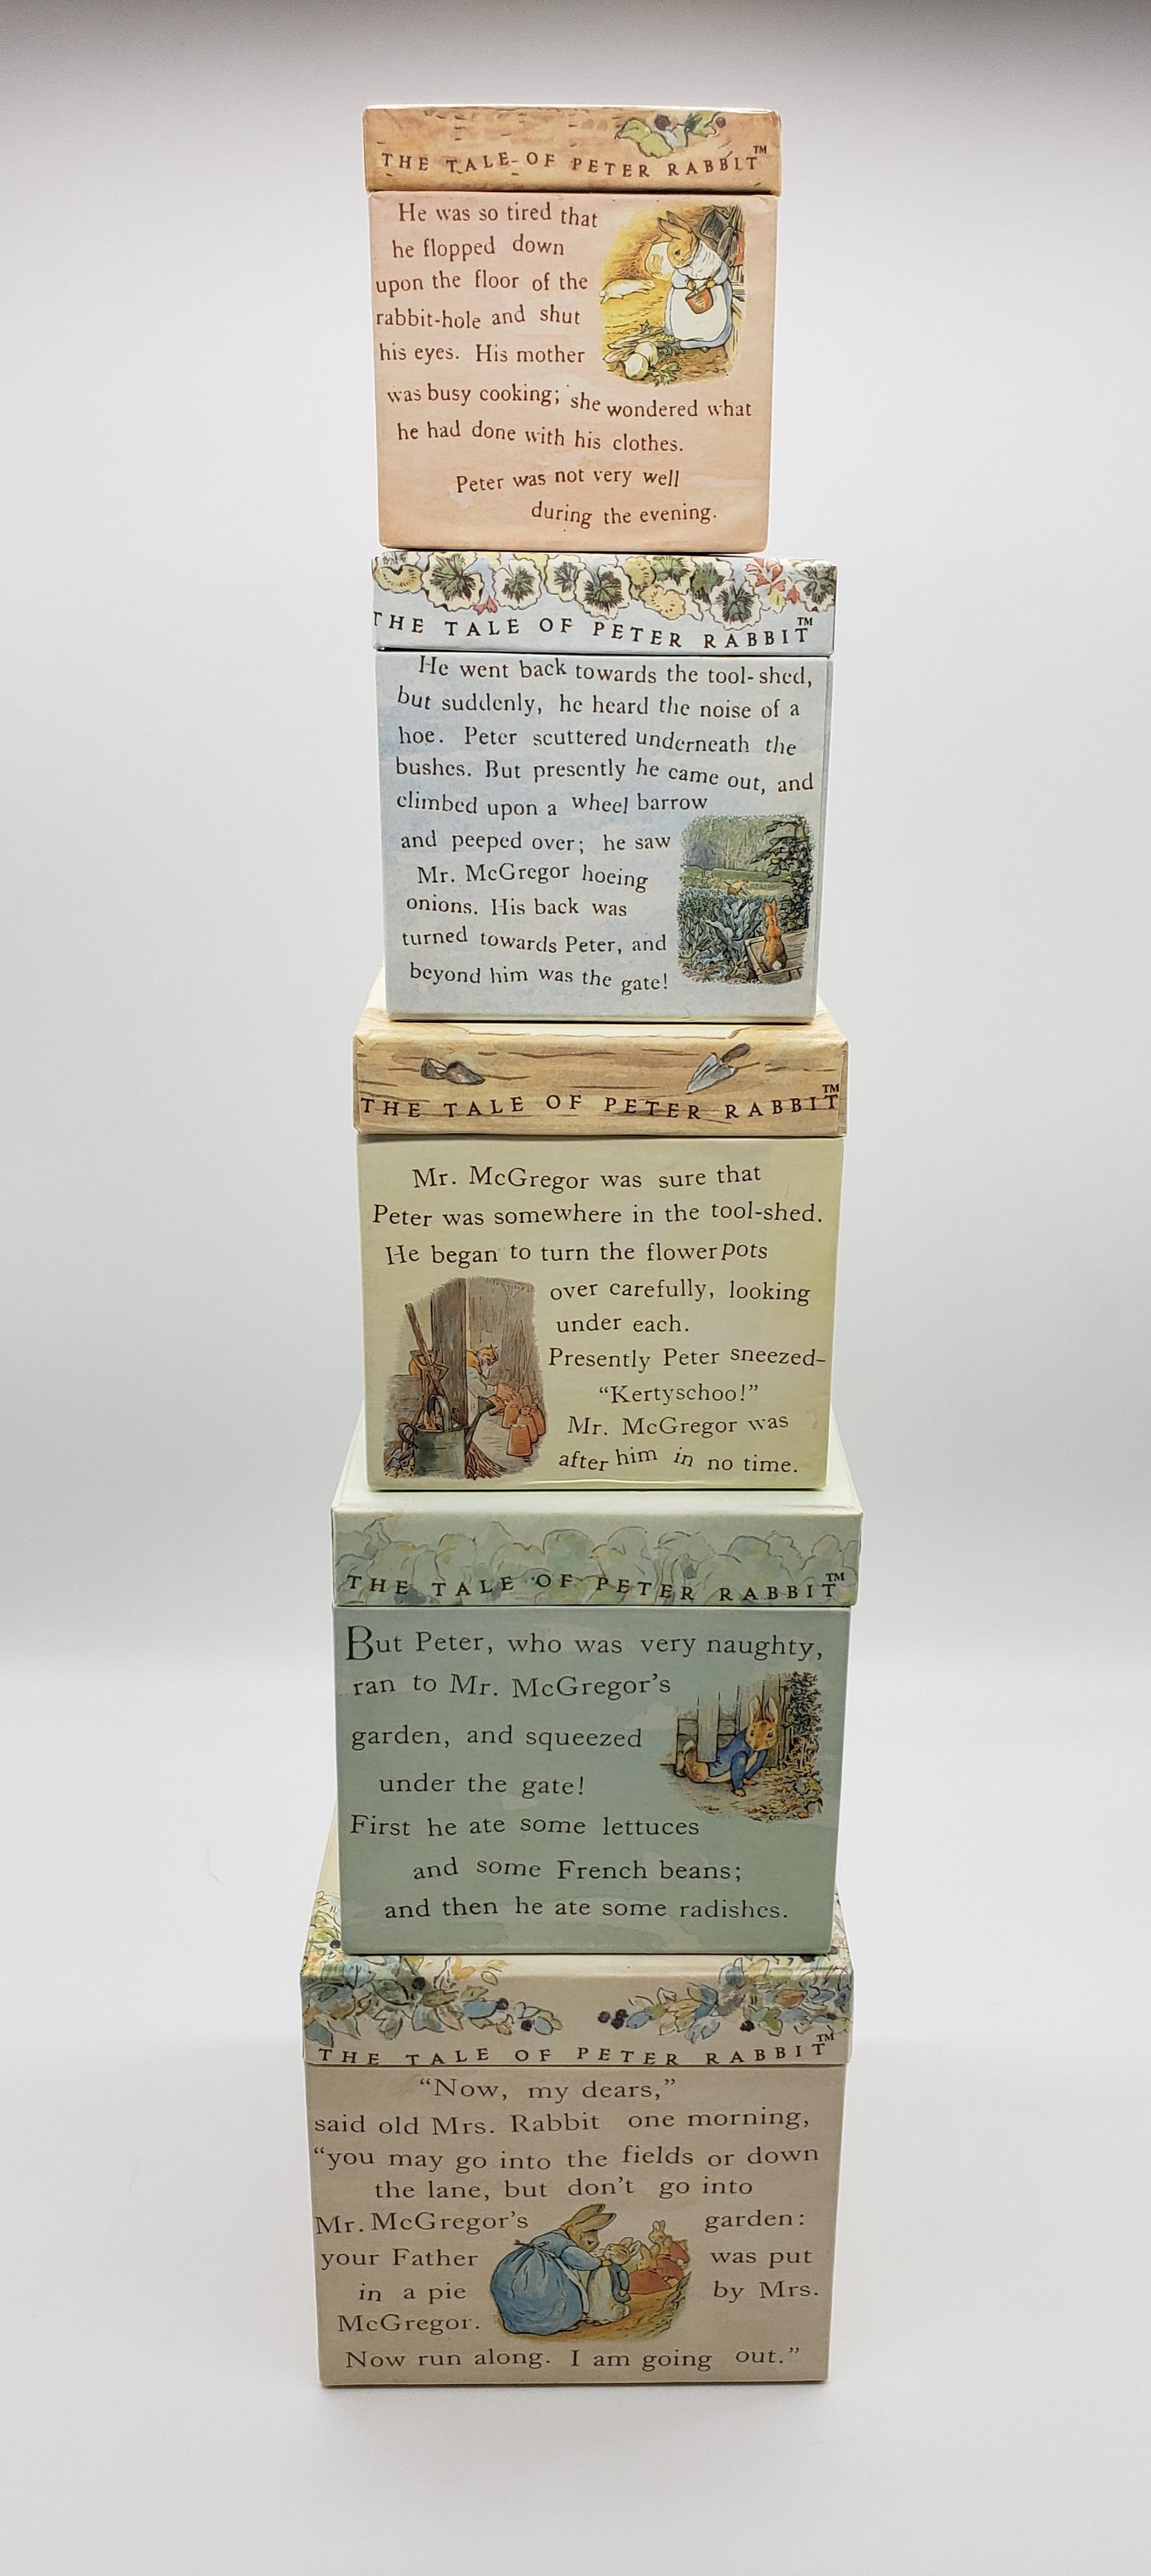 THE TALE OF PETER RABBIT™
He was so tired that
he flopped down
upon the floor of the
rabbit-hole and shut
his eyes. His mother
was busy cooking; she wondered what
he had done with his clothes.
Peter was not very well
during the evening.
THE TALE OF PETER RABBIT™
He went back towards the tool-shed,
but suddenly, he heard the noise of a
hoe. Peter scuttered underneath the
bushes. But presently he came out, and
climbed upon a wheel barrow
and peeped over; he saw
Mr. McGregor hoeing
onions. His back was
turned towards Peter, and
beyond him was the gate!
THE TALE OF PETER RABBIT™
Mr. McGregor was sure that
Peter was somewhere in the tool-shed.
He began to turn the flowerpots
over carefully, looking
under each.
Presently Peter sneezed–
“Kertyschoo!”
Mr. McGregor was
after him in no time.
THE TALE OF PETER RABBIT™
But Peter, who was very naughty,
ran to Mr. McGregor's
garden, and squeezed
under the gate!
First he ate some lettuces
and some French beans;
and then he ate some radishes.
THE TALE OF PETER RABBIT™
“Now, my dears,”
said old Mrs. Rabbit one morning,
“you may go into the fields or down
the lane, but don't go into
Mr. McGregor's garden:
your Father was put
in a pie by Mrs.
McGregor.
Now run along. I am going out.”